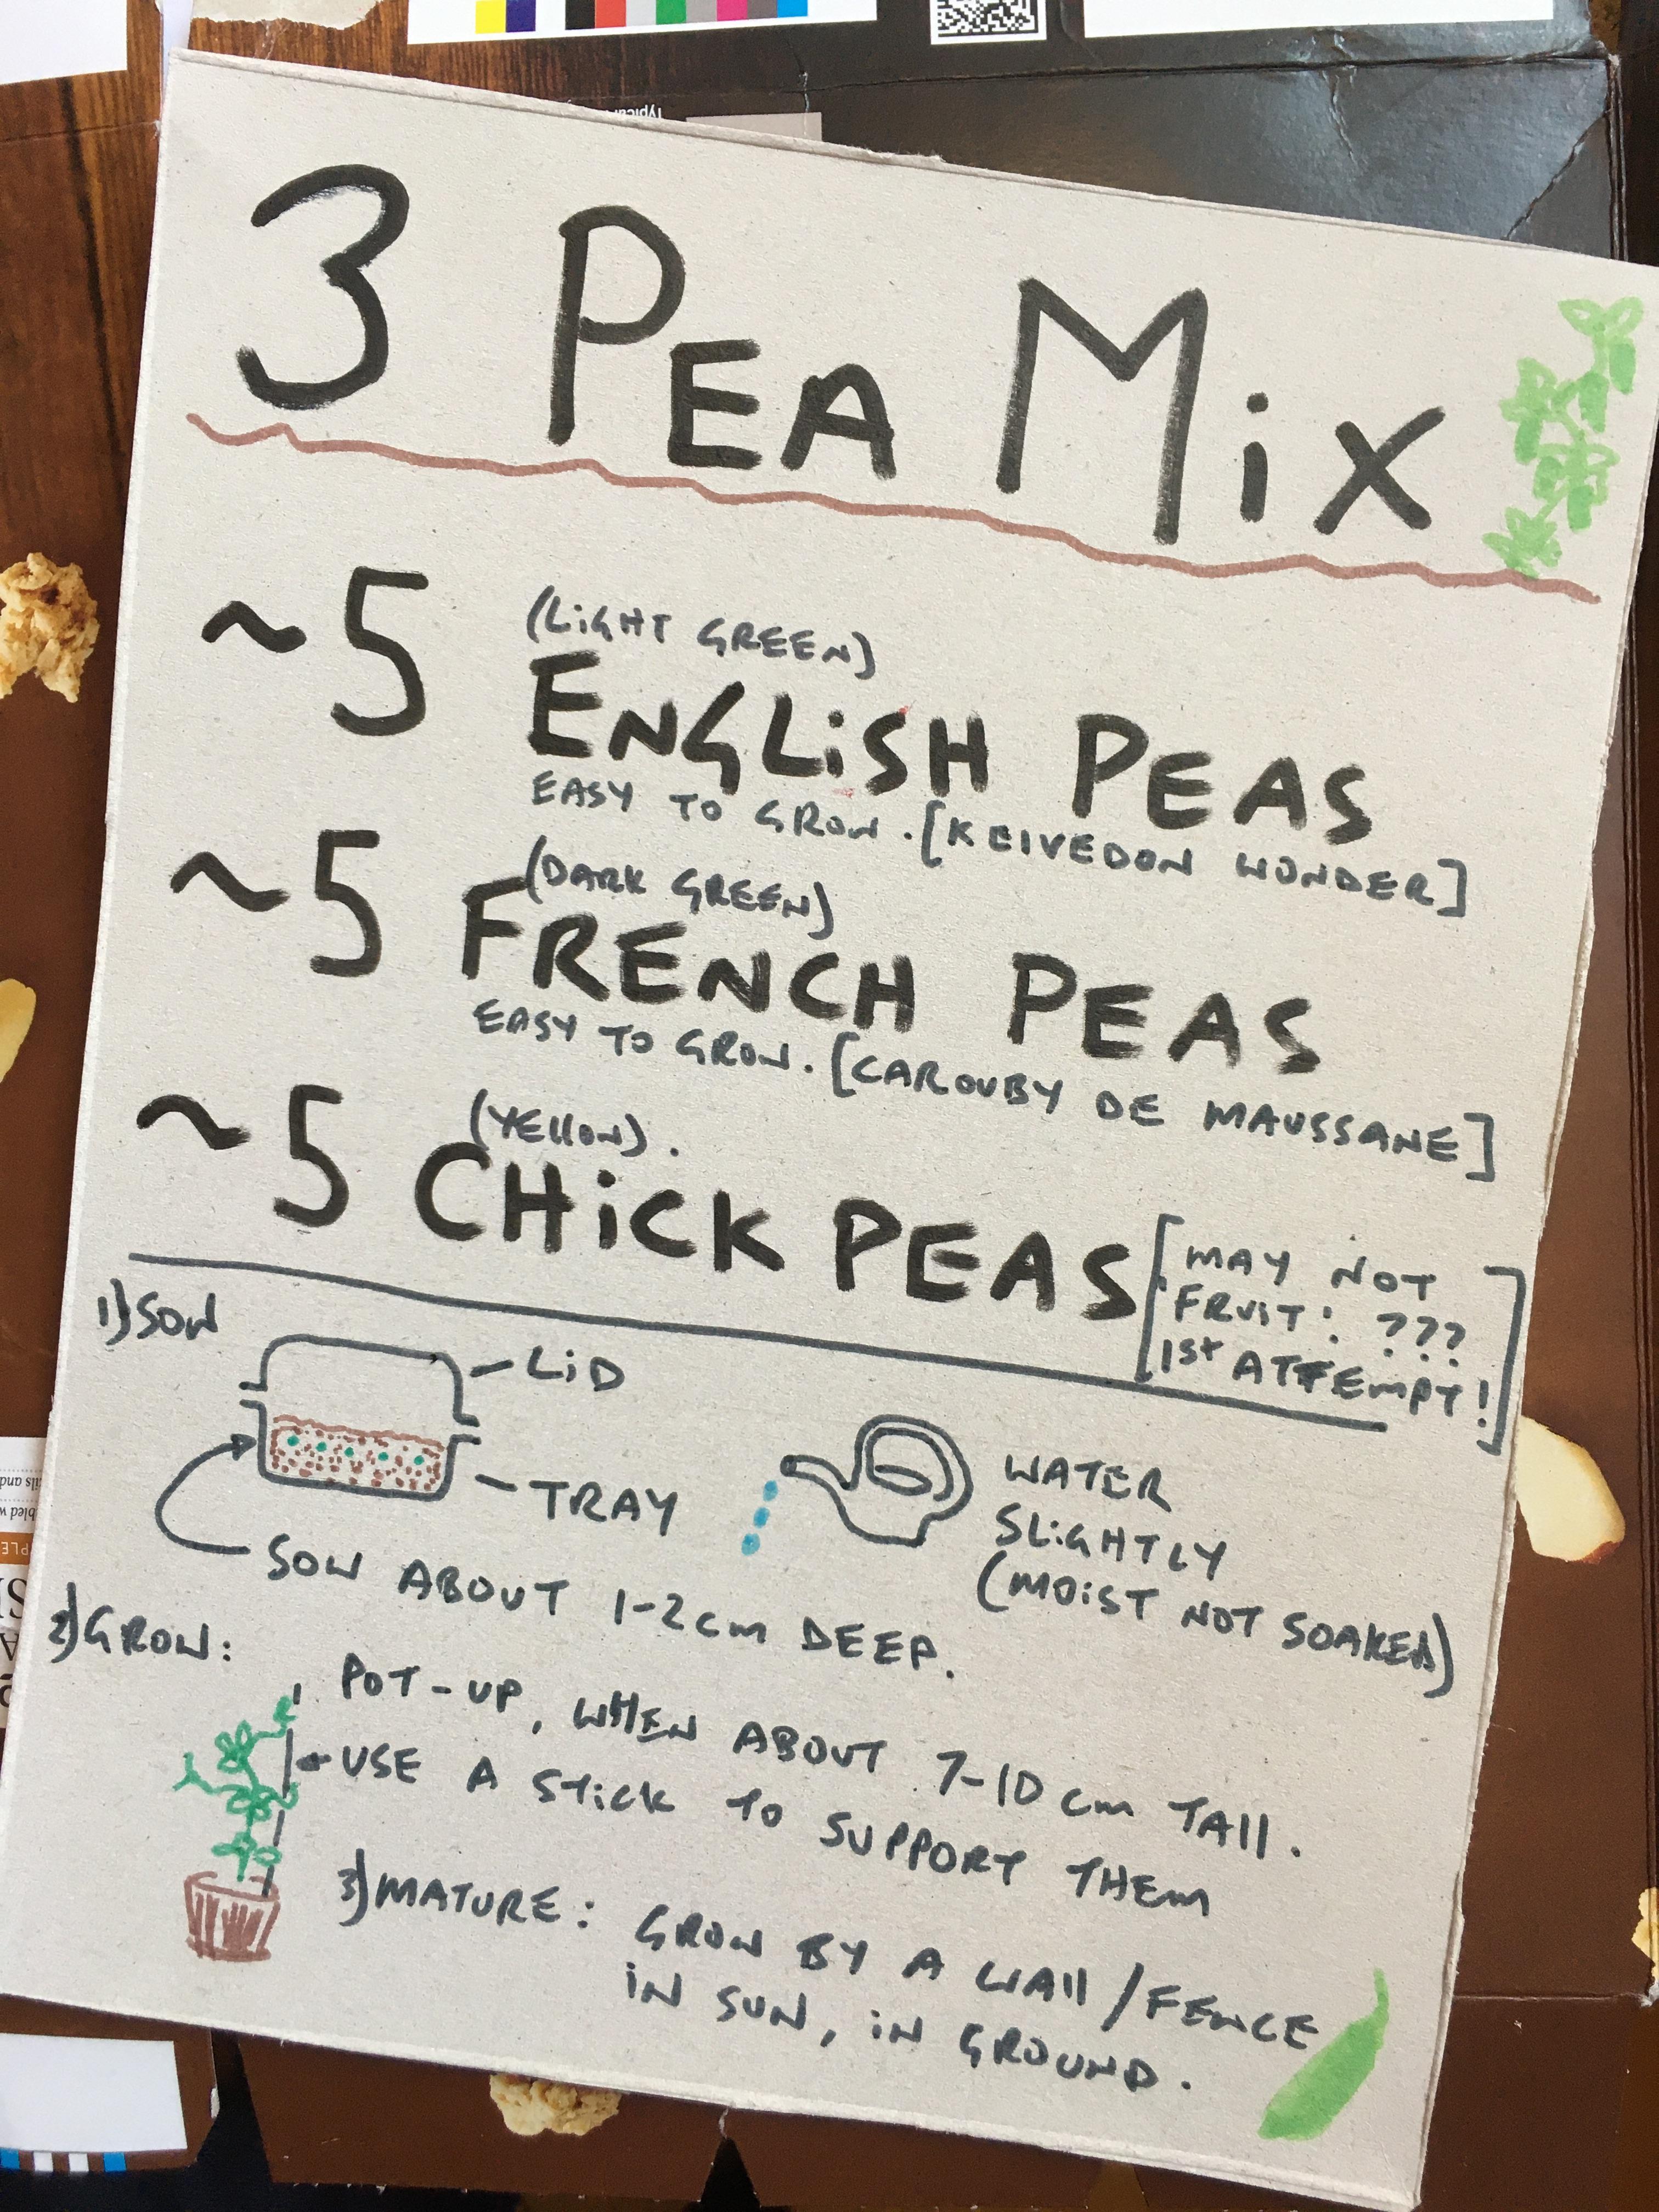 3 PEA MiX
~5 (LiGHT GREEN)
ENGLiSH PEAS
EASY TO GROW. [KEIVEDON WONDER]
~5 (DARK GREEN)
FRENCH PEAS
EASY TO GROW. [CAROUBY DE MAUSSANE]
~5 (YEllOW).
CHiCK PEAS
[MAY NOT
FRUiT! ???
1st ATTEMPT!]
1) SOW
LiD
TRAY
SOW ABOUT 1-2cm DEEP.
WATER
SLiGHTLY
(MOiST NOT SOAKED)
2) GROW:
POT-UP, WHEN ABOUT 7-10cm TAll.
USE A STiCK TO SUPPORT THEM
3) MATURE: GROW BY A WAll/FENCE
iN SUN, iN GROUND.